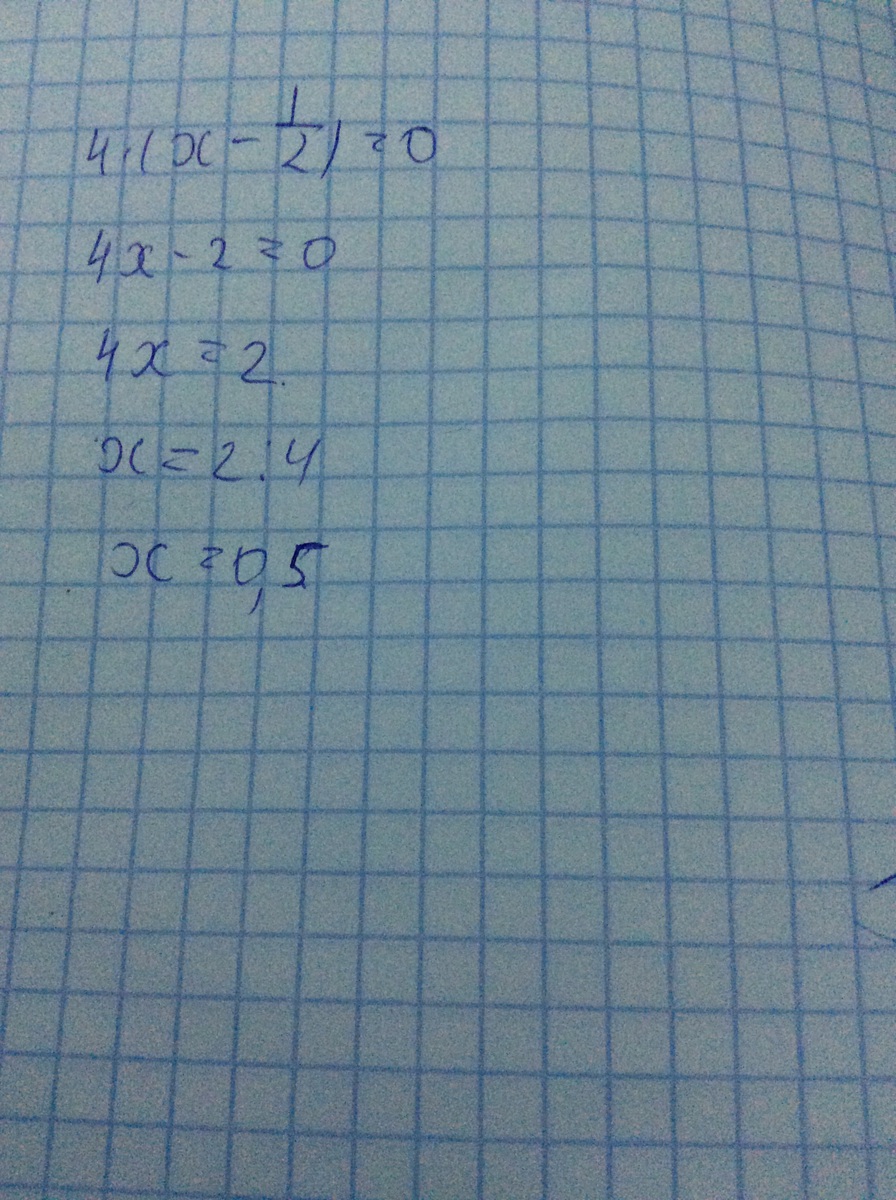 4·(x - 1/2) = 0
4x - 2 = 0
4x = 2
x = 2 : 4
x = 0,5